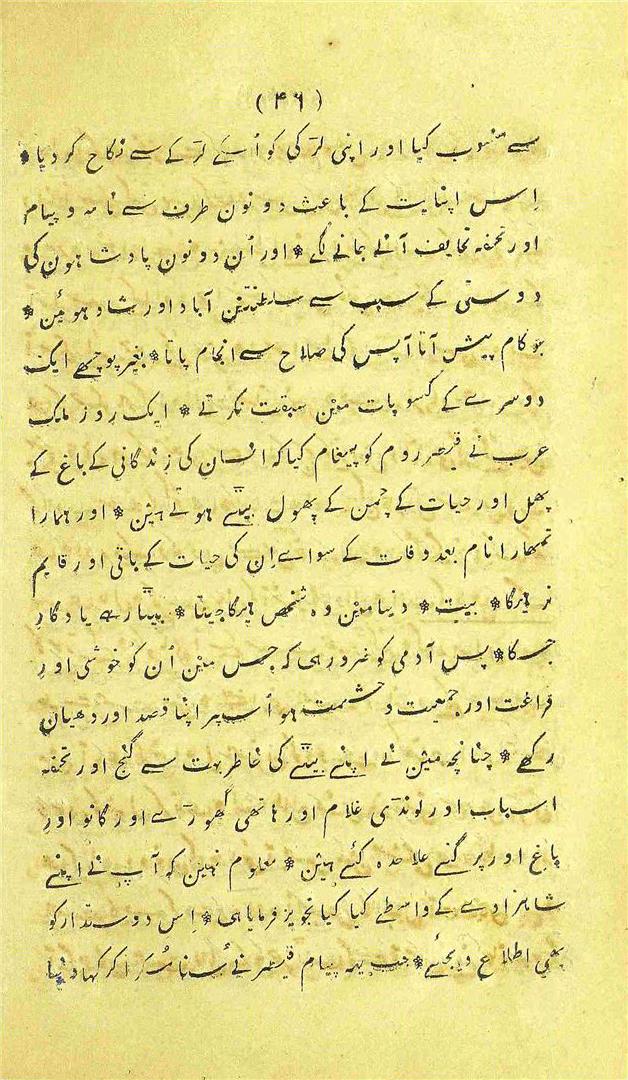 (۴۶)
سے منسوب کیا اور اپنی لڑکی کو اُسکے لڑکے سے نکاح کردیا *
اِس اپنایت کے باعث دونون طرف سے نامہ و پیام
اور تحفہ تحایف آنے جانے لگے * اور اُن دونون پادشاہون کی
دوستی کے سبب سے سلطنتین آباد اور شاد ہوئین *
جو کام پیش آتا آپس کی صلاح سے انجام پاتا * بغیر پوچھے ایک
دوسرے کے کسو بات مین سبقت نکرتے * ایک روز ملک
عرب نے قیصر روم کو پیغام کیا کہ انسان کی زندگانی کے باغ کے
پھل اور حیات کے چمن کے پھول بیٹے ہوتے ہین * اور ہمارا
تمھارا نام بعد وفات کے سواے اِن کی حیات کے باقی اور قایم
نرہیگا * بیت * دنیا مین وہ شخص ہیگا جیتا * بیٹا رہے یادگار
جسکا * پس آدمی کو ضرور ہی کہ جس مین اُن کو خوشی اور
فراغت اور جمعیت و حشمت ہو اُسپر اپنا قصد اور دھیان
رکھے * چنانچہ مین نے اپنے بیٹے کی خاطر بہت سے گنج اور تحفہ
اسباب اور لونڈی غلام اور ہاتھی گھوڑے اور گانو اور
باغ اور پرگنے علاحدہ کئے ہین * معلوم نہین کہ آپ نے اپنے
شاہزادے کے واسطے کیا کیا تجویز فرمایا ہی * اِس دوستدار کو
بھی اطلاع دیجئے * جب یہہ پیام قیصر نے سُنا مُسکرا کر کہا دنیا